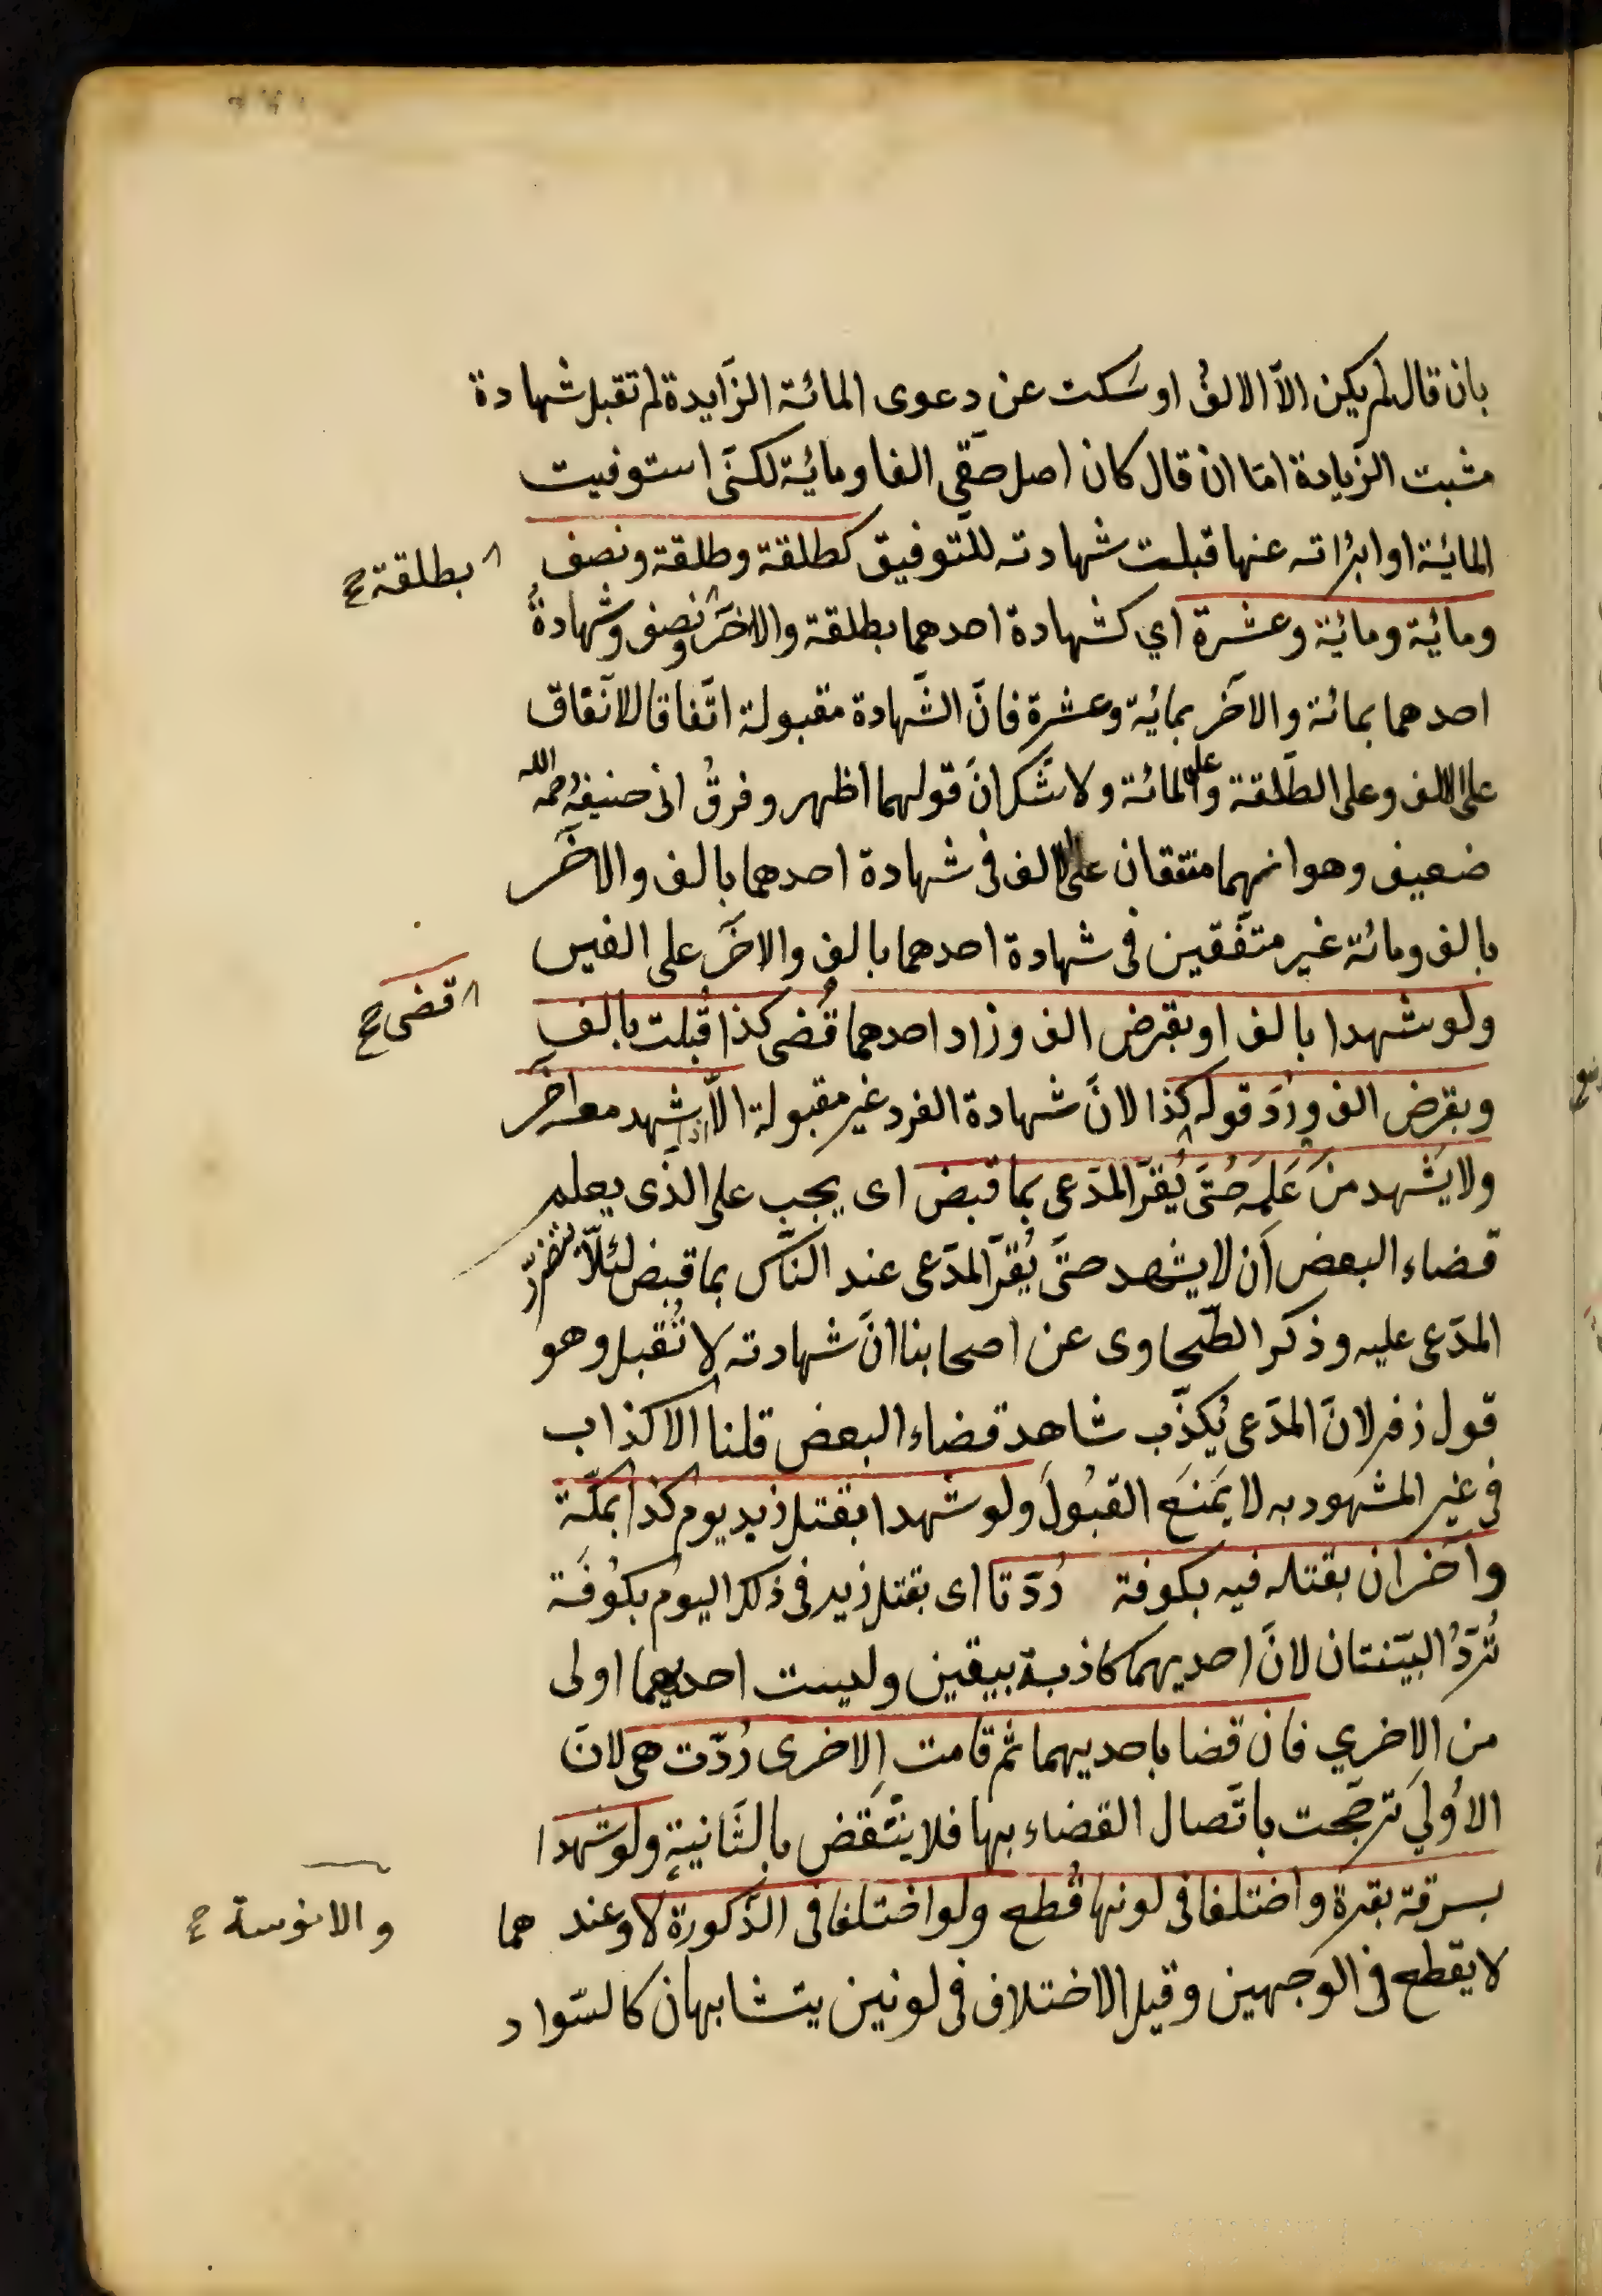 بان قال لم يكن الاّ الالفُ او سَكت عن دعوى المائة الزّايدة لم تقبل شهادة
مثبت الزّيادة امّا ان قال كان اصل حقّي الفا ومائة لكنّى استوفيت
المائية او ابرْاته عنها قبلت شهادته للتّوفيق كطلقة وطلقة ونصف
بطلقة صح
ومائة ومائة وعشرة اي كشهادة احدهما بطلقة والاخَر ونصف وشهادةُ
احدهما بمائة والآخر بمائة وعشرة فانّ الشّهادة مقبولة اتّفاقا للاتّفاق
على الالف وعلى الطّلقة وعلى المائة ولا شكّ انّ قولهما اظهر وفرقُ ابى حنيفة رحمه الله
ضعيف وهو انهما متفقان على الالف فى شهادة احدهما بالف والاخَر
بالف ومائة غير متّفقين فى شهادة احدهما بالف والاخَر على الفين
ولو شهدا بالف او بقرض الف وزاد احدهما قُضى كذا قُبلت بالف
قضى صح
وبقرض الف ورُدّ قوله كذا لانّ شهادة الفرد غير مقبولة الاّ اذا شهد معه اخَر
ولا يَشهد منَ عَلِمَه حتّى يُقرّ المدّعى بما قبض اى يجب على الذّى يعلم
قضاء البعض اَن لا يشهد حتّى يُقرّ المدّعى عند النّاس بما قبض لئلاّ يتضرّر
المدّعى عليه وذكر الطّحاوى عن اصحابنا انّ شهادته لا تُقبل وهو
قول زفر لانّ المدّعى يُكذّب شاهد قضاء البعض قلنا الاكذاب
فى غير المشهود به لا يَمنَع القبُولَ ولو شهدا بقتل زيد يوم كذا بمكّة
واخَران بقتله فيه بكوفة رُدّتا اى بقتل زيد فى ذلك اليوم بكُوفَة
تُرَدّ البيّنتان لانّ احديهما كاذبة بيقين وليست احديهما اولى
من الاخري فان قضا باحديهما ثم قامت الاخرى رُدّت هى لانّ
الاُولىَ ترجّحت باتّصال القضاء بها فلا ينتَقض بالثّانية ولو شهدا
بسرقة بقرة واختلفا فى لونها قُطع ولو اختلفا فى الذّكورة لا وعند هما
والانوسة صح
لا يقطع فى الوجهين وقيل الاختلاف فى لونين يتشابهان كالسّواد